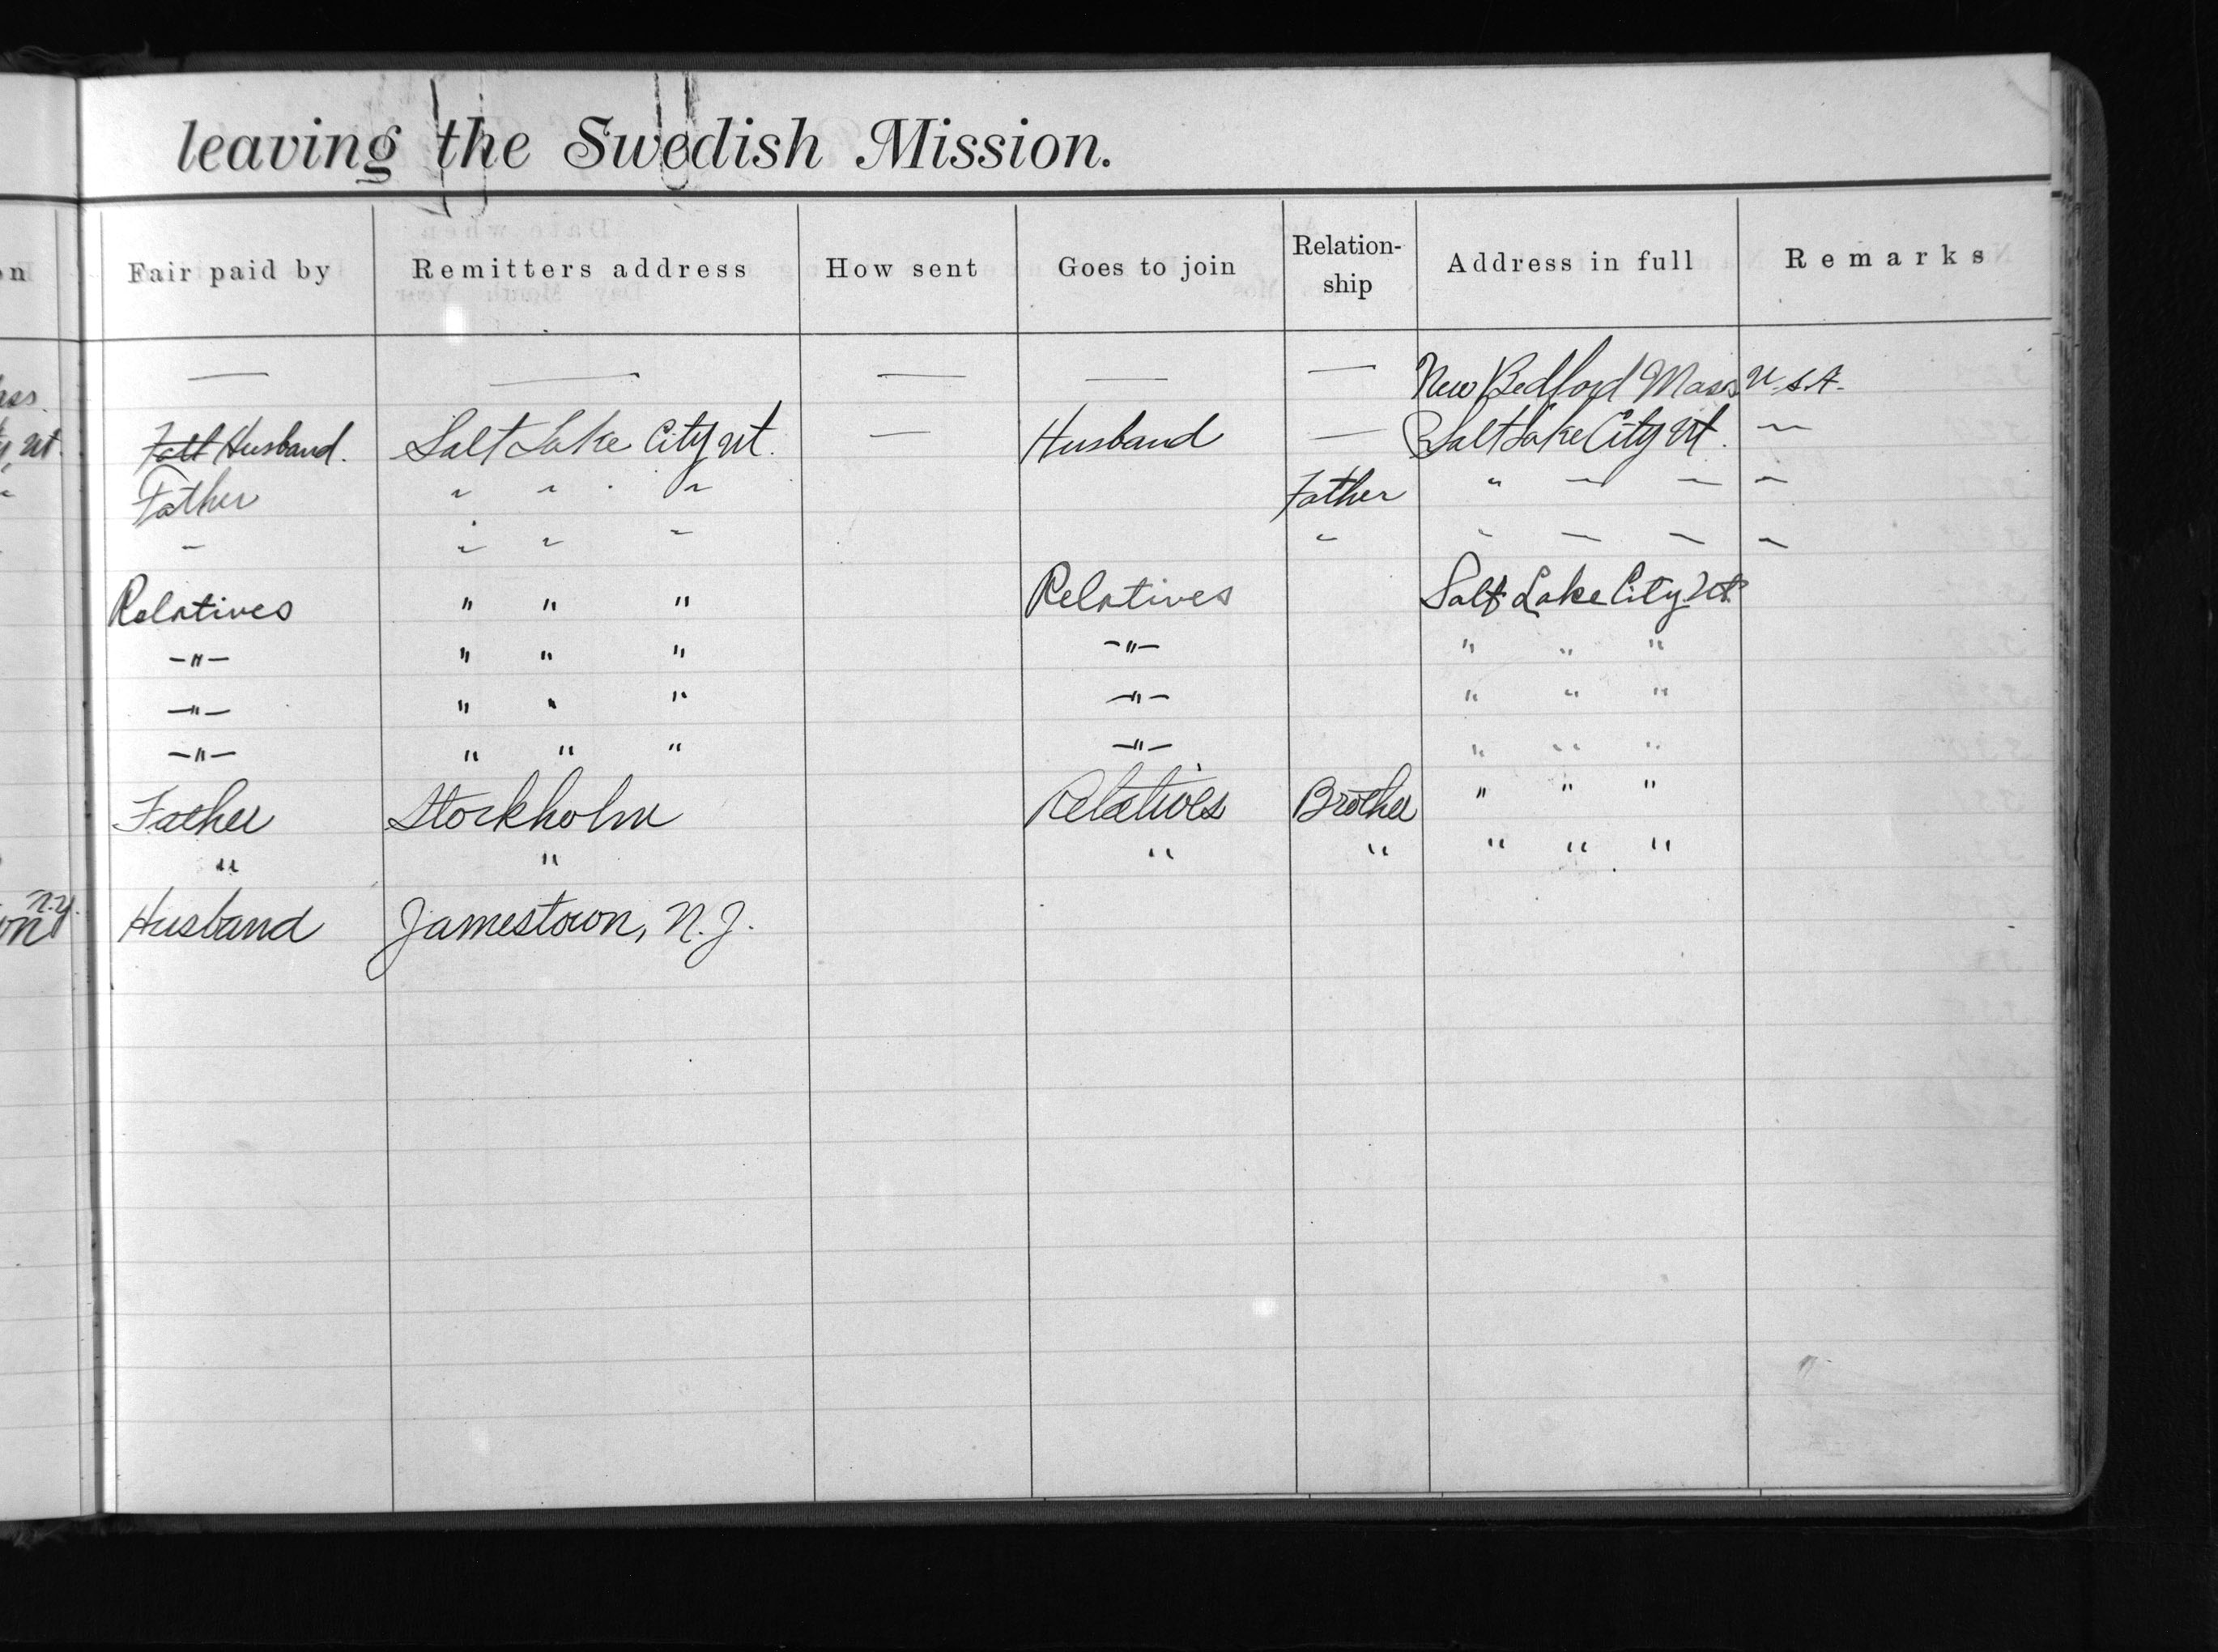 leaving the Swedish Mission.
on Fair paid by Remitters address How sent Goes to join Relation-ship Address in full Remarks
— — — — — New Bedford Mass U.S.A.
Husband. Salt Lake City Ut. — Husband — Salt Lake City Ut. —
Father " " " Father " — — —
— " " " " " — — —
Relatives " " " Relatives Salt Lake City. Ut.
—"— " " " —"— " " "
—"— " " " —"— " " "
—"— " " " —"— " " "
Father Stockholm Relatives Brother " " "
" " " " " " "
N.Y.
Husband Jamestown, N.J.